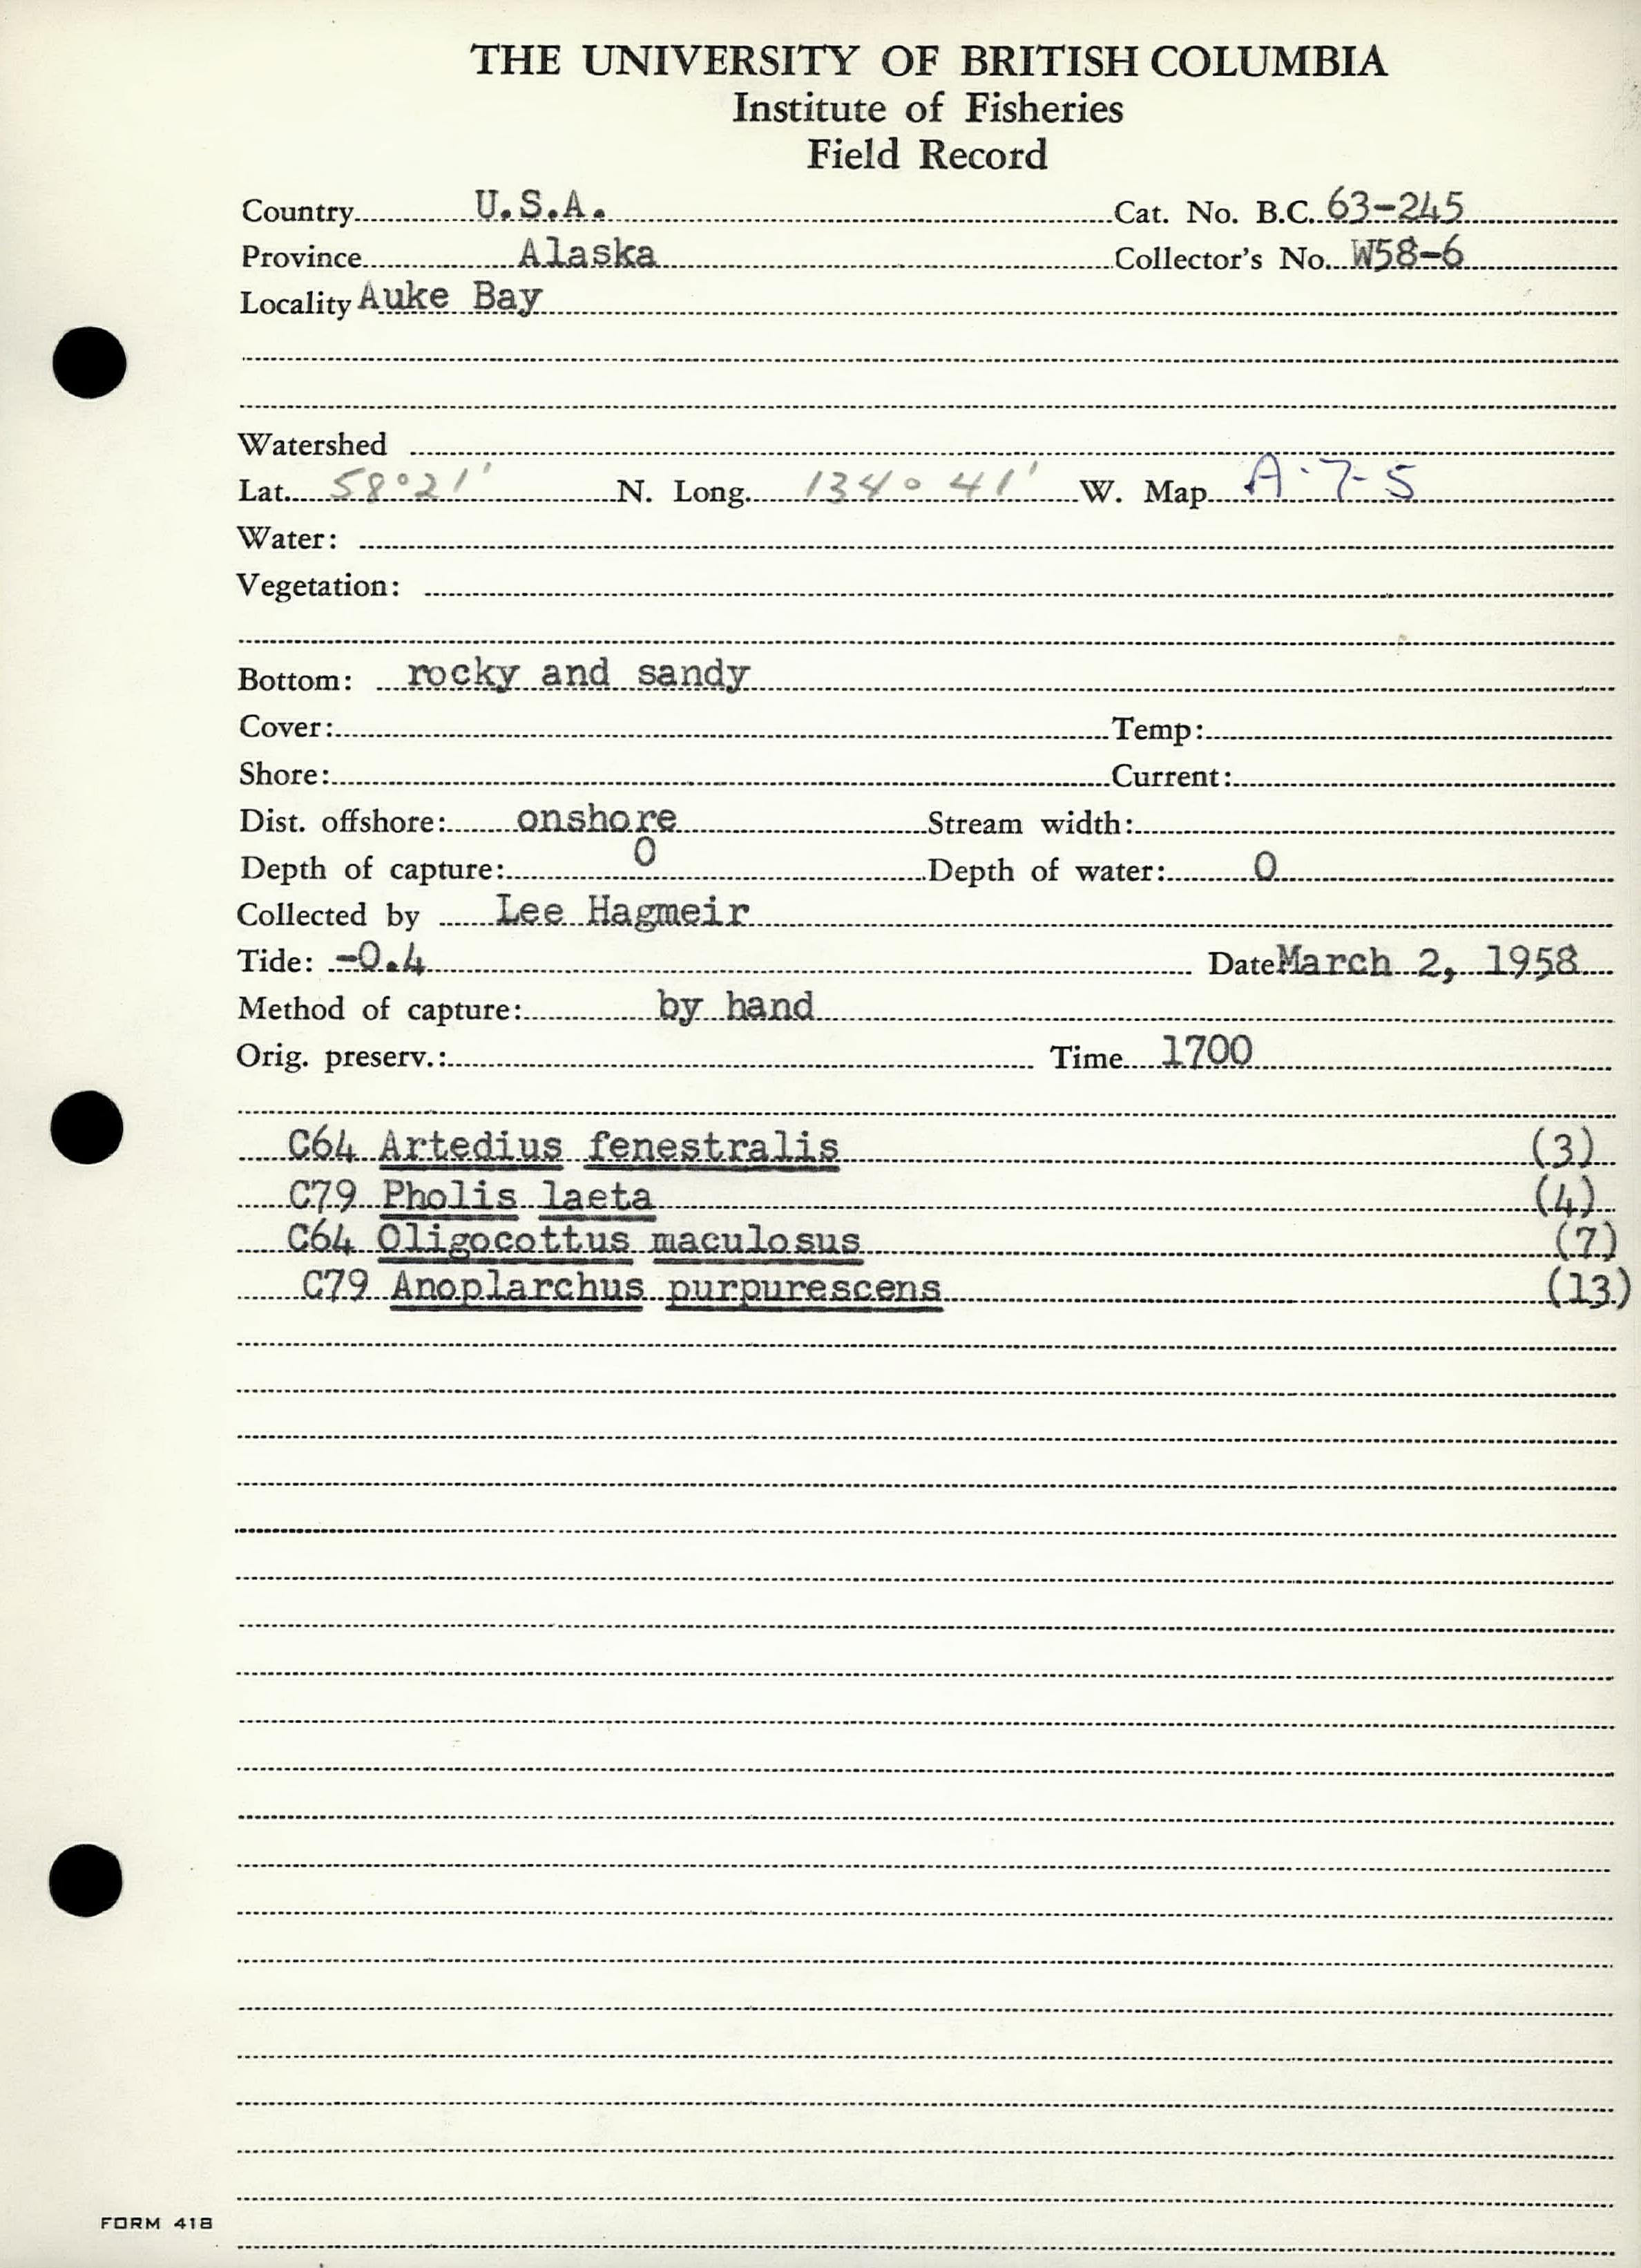 THE UNIVERSITY OF BRITISH COLUMBIA
Institute of Fisheries
Field Record
Country U.S.A. Cat. No. B.C. 63-245
Province Alaska Collector's No. W58-6
Locality Auke Bay
Watershed
Lat. 58°21' N. Long. 134° 41' W. Map A-7-5
Water:
Vegetation:
Bottom: rocky and sandy
Cover: Temp:
Shore: Current:
Dist. offshore: onshore Stream width:
Depth of capture: 0 Depth of water: 0
Collected by Lee Hagmeir
Tide: -0.4 Date March 2, 1958
Method of capture: by hand
Orig. preserv.: Time 1700
C64 Artedius fenestralis (3)
C79 Pholis laeta (4)
C64 Oligocottus maculosus (7)
C79 Anoplarchus purpurescens (13)
FORM 418